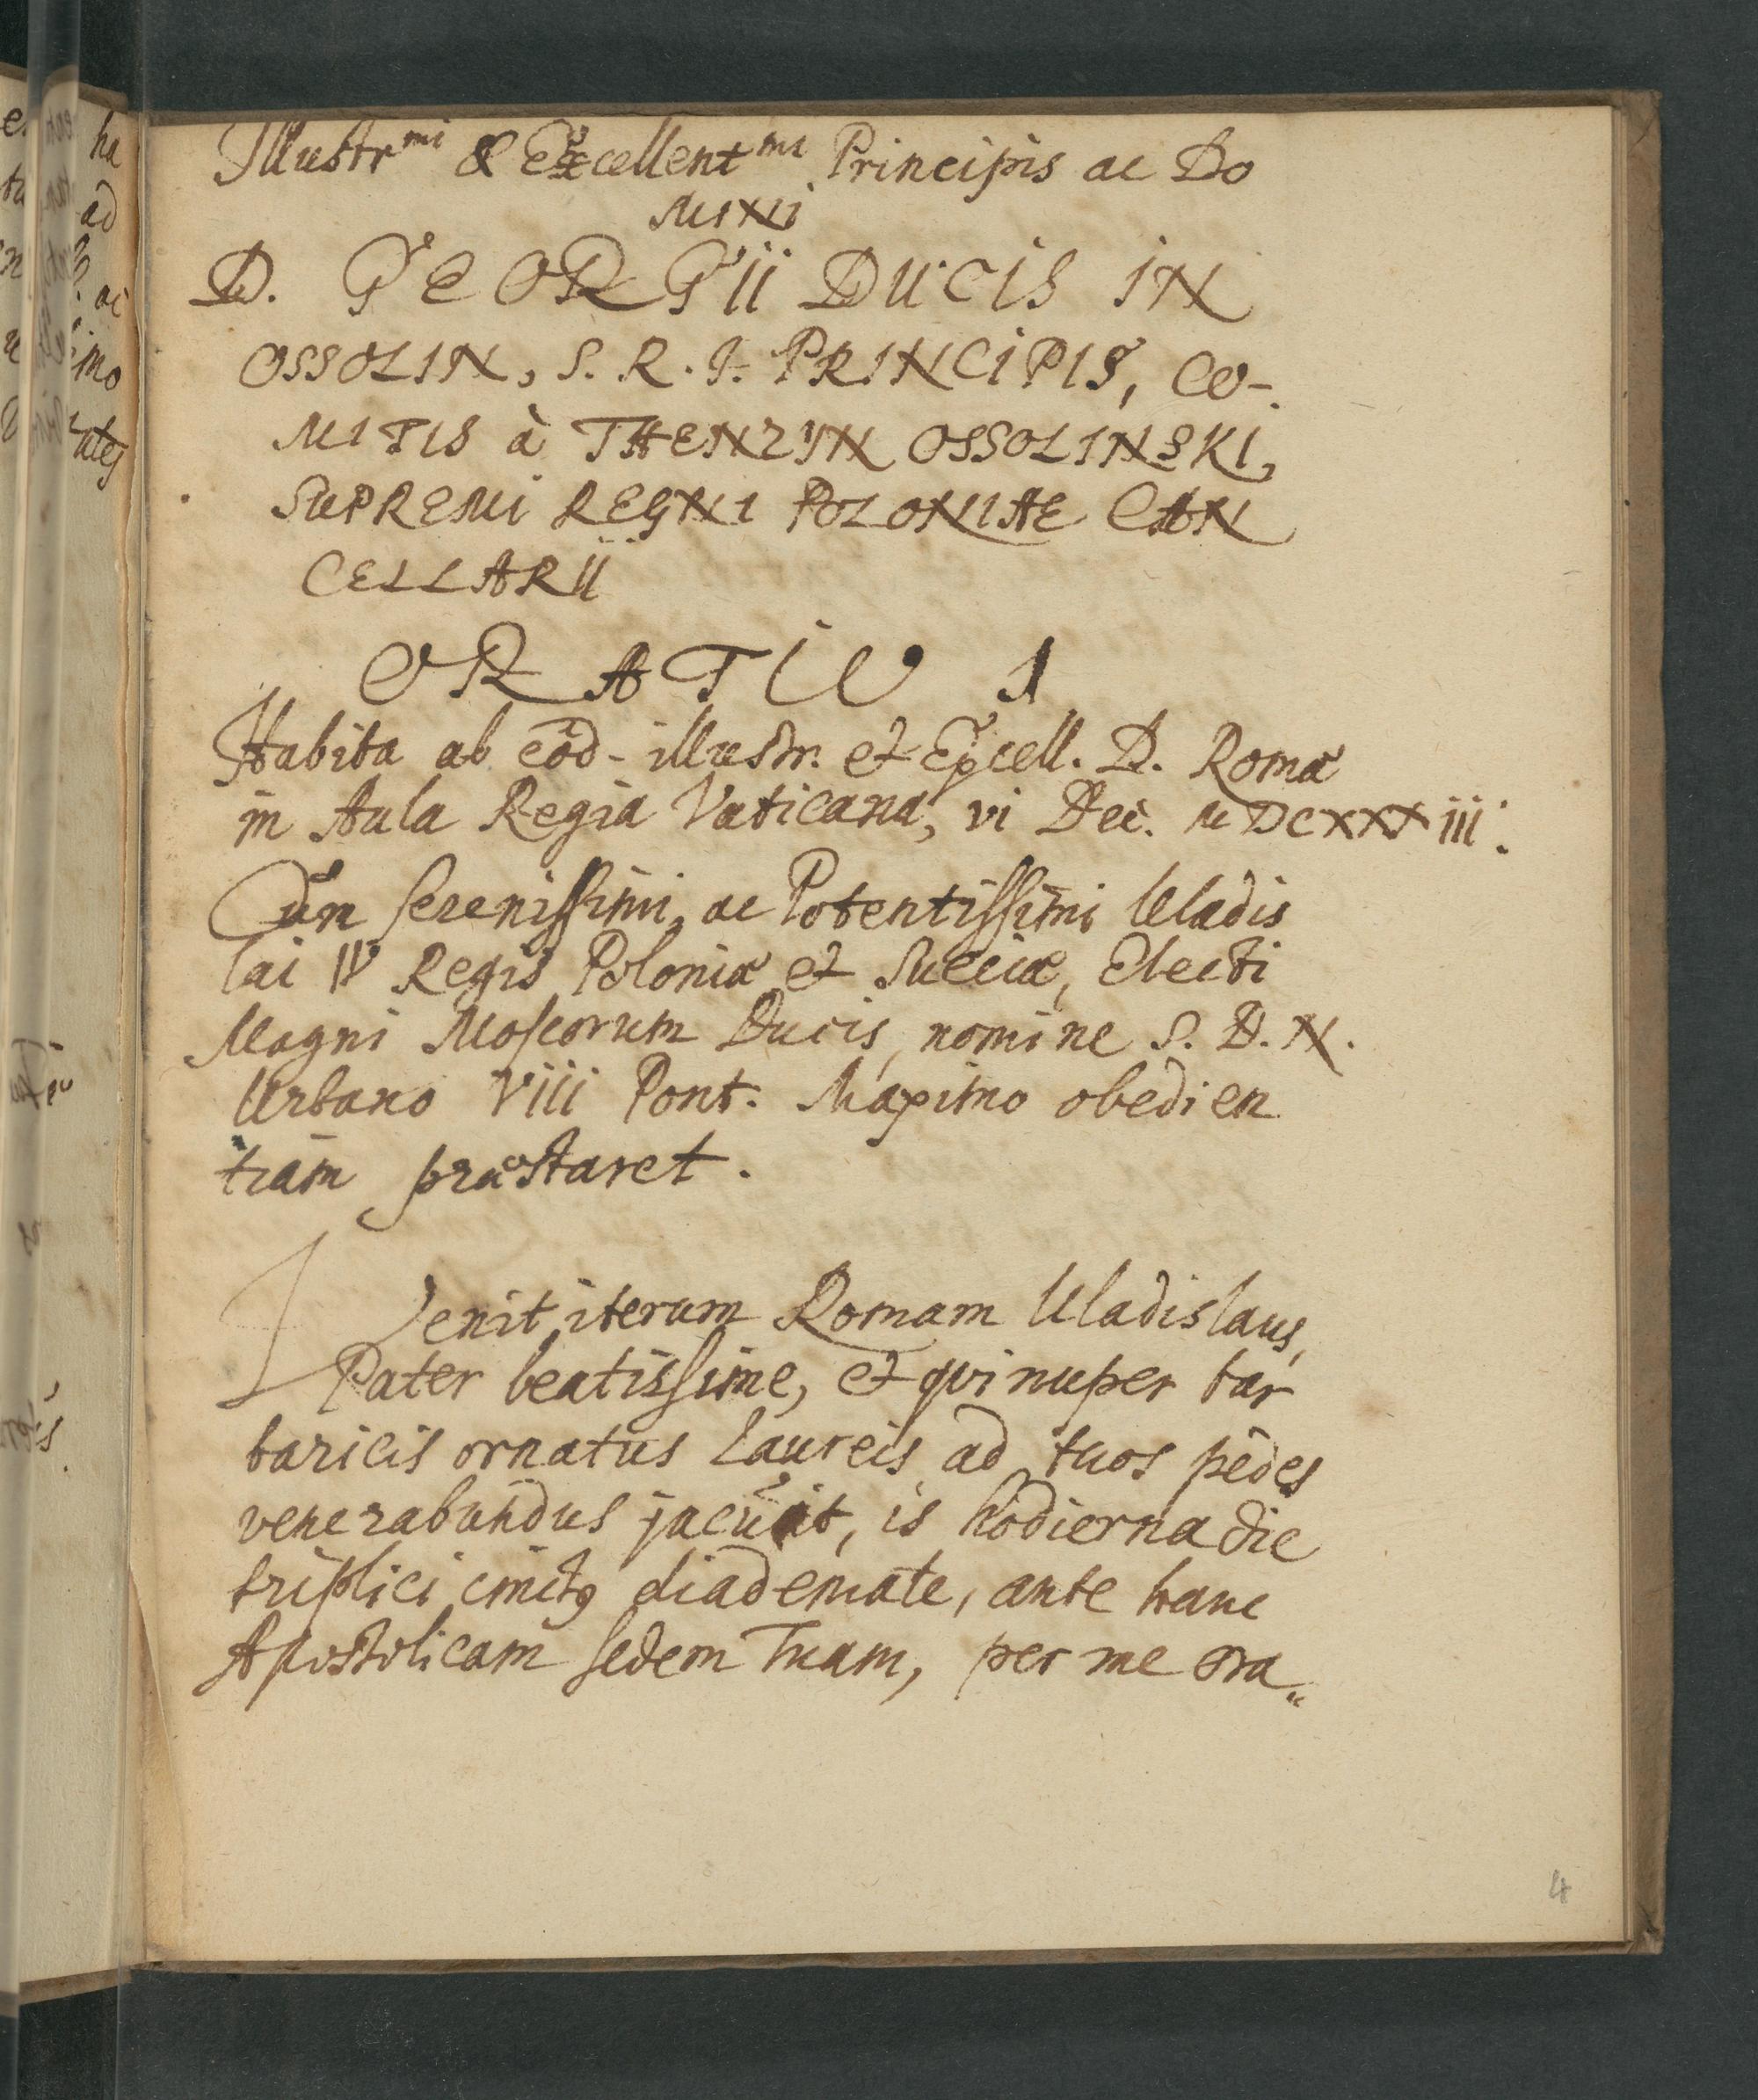 Illustr^mi & Excellent^mi Principis ac Do
MINI
D. GEORGII DUCIS IN
OSSOLIN, S. R. I. PRINCIPIS, CO-
MITIS à THENZYN OSSOLINSKI,
SUPREMI REGNI POLONIAE CAN
CELLARII
ORATIO 1
Habita ab eod- illustr. et Excell. D. Romæ
in Aula Regia Vaticana, vi Dec. MDCXXXiii.
Cum serenissimi, ac Potentissimi Uladis
lai IV Regis Poloniæ et Sueciæ, Electi
Magni Moscorum Ducis, nomine S. D. N.
Urbano Viii Pont. Maximo obedien
tiam præstaret.
Venit iterum Romam Uladislaus,
Pater beatissime, et qui nuper bar
baricis ornatus Laureis ad tuos pedes
venerabundus jacuit, is hodierna die
triplici cinctꝰ diademate, ante hanc
Apostolicam sedem Tuam, per me ora„
4